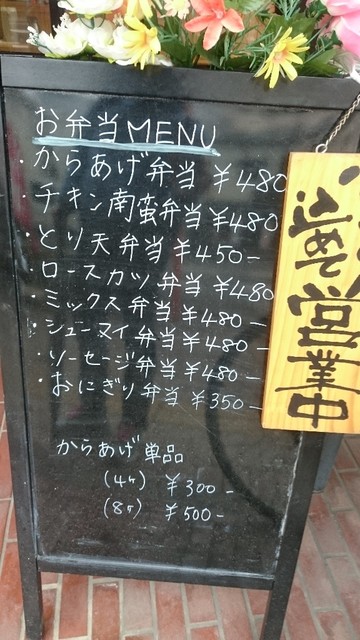 お弁当MENU
・からあげ弁当 ¥480
・チキン南蛮弁当 ¥480
・とり天弁当 ¥450-
・ロースカツ弁当 ¥480
・ミックス弁当 ¥480-
・シューマイ弁当 ¥480-
・ソーセージ弁当 ¥480-
・おにぎり弁当 ¥350-
からあげ単品
(4ヶ) ¥300-
(8ヶ) ¥500-
営業中